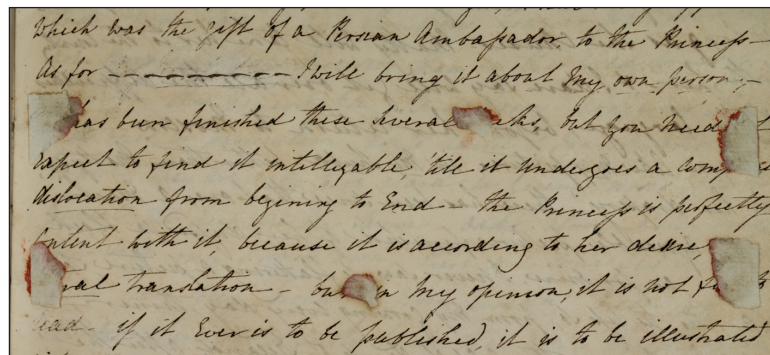 which was the gift of a Persian Ambassador to the Princess -
As for ---------- I will bring it about my own person, -
has been finished these several but you need
expect to find it intillegable 'till it undergoes a
dislocation from begining to End - the Princess is perfectly
with it, because it is according to her desire,
translation - but in my opinion, it is not
if it Ever is to be published, it is to be illustrated